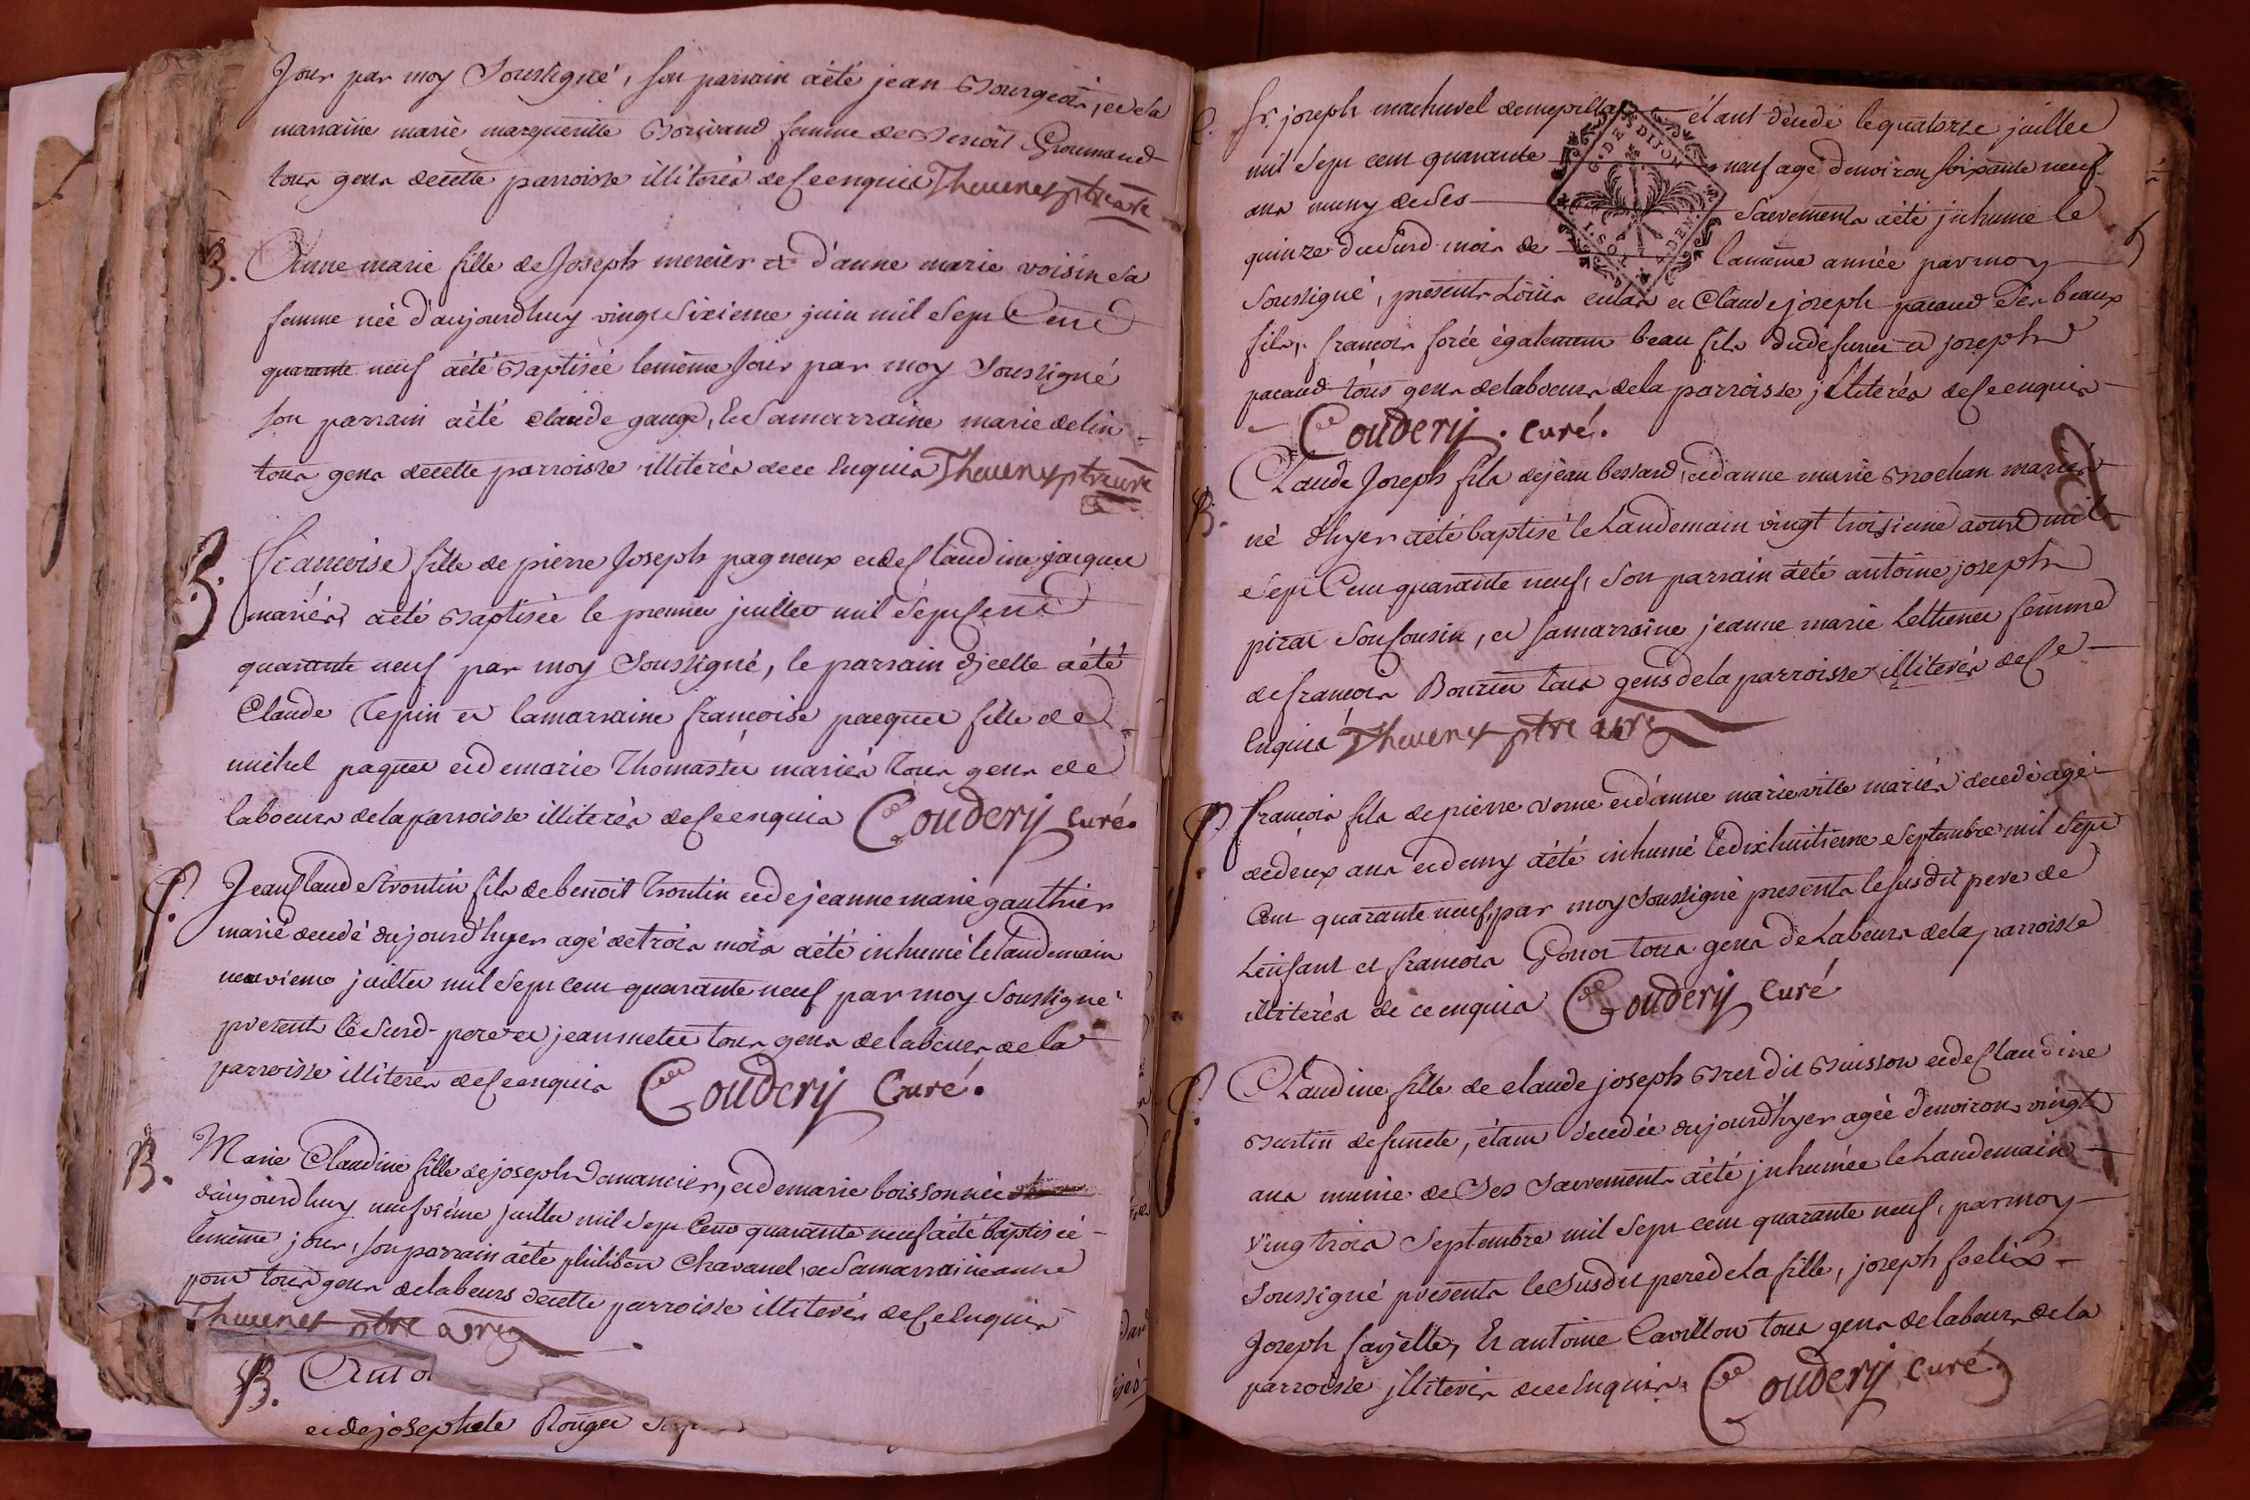 jour par moy soussigné, son parrain aété jean Bourgeois, et la
marraine marie margueritte femme de Benoit
tous gens decette parroisse illiterés de Ce enquis Thevenet ptre
B. Anne marie fille de Joseph mercier et d'anne marie voisin sa
femme née d'aujourdhuy vingt sixieme juin mil sept Cent
quarante neuf aété Baptisée lemême jour par moy soussigné
son parrain aété claude gauge, et samarraine marie delin
tous gens decette parroisse illiterés dece Enquis Thevenet ptre
B. francoise fille de pierre Joseph pagneux et de Claudine jacquet
mariés, aété Baptisée le premier juillet mil sept Cent
quarante neuf par moy soussigné, le parrain djcelle aété
Claude Tepin et lamarraine françoise pacquet fille de
michel paquet et demarie Thomasset mariés tous gens de
laboeurs delaparroisse illiterés de Ce enquis Couderij curé.
S. Jean Claude trontin fils debenoit trontin et de jeanne marie gauthier
marié decedé dujourd'hyer agé de trois mois aété inhumé le landemain
neuvieme juillet mil sept cent quarante neuf par moy soussigné
presents le susd. pere et jean metra tous gens de labeurs de la
parroisse illiterés de Ce enquis Couderij Curé.
B. Marie Claudine fille dejoseph Damancier, et demarie boisson née
daujourdhuy neufvième juillet mil sept Cent quarante neuf aété baptisée
lemême jour, son parrain aété philibert Chavanel, et samarraine anne
pour tous gens delabeurs decette parroisse illiterés de Ce Enquis
Thevenet ptre
B. Anto
et de josephte Rouget
Sr. joseph machuvel étant décédé le quatorze juillet
mil sept cent quarante neuf agé d'environ soixante neuf
G. DE DIJON
ans muny de ses sacrements aété jnhumé le
quinze du susd. mois de lamême année par moy
I. SOL DEN.
soussigné, presents Loüis cular et Claude joseph pacaud ses beaux
fils, francois forêt également beau fils dudefunct et joseph
pacaud tous gens delaboeurs dela parroisse jlliterés de Ce enquis
Couderij. curé.
B. Claude Joseph fils dejean bessard, et danne marie Brochan mariés
né d'hyer aété baptisé le Landemain vingt troisieme aoust mil
sept Cent quarante neuf, son parrain aété antoine joseph
pirat son Cousin, et samarraine jeanne marie femme
de francois Bourtin tous gens de la parroisse illiterés de Ce
Enquis Thevenet ptre
S. francois fils de pierre verne et d'anne marie vitte mariés decedé agé
de deux ans et demy aété inhumé le dix huitieme septembre mil sept
Cent quarante neuf, par moy soussigné presents le susdit pere de
Lenfant et francois Gonot tous gens de Labeurs dela parroisse
illiterés de ce enquis Couderij curé
S. Claudine fille de claude joseph Bret dit Buisson et de Claudine
Burtin defuncte, étant decedée dujourd'hyer agée d'environs vingt
ans munie de ses sacrements aété jnhumée le Landemain
vingtrois septembre mil sept cent quarante neuf, par moy
soussigné presents le susdit pere de la fille, joseph foelix
Joseph fayette, Et antoine Cavillon tous gens de labeurs dela
parroisse jlliterés de ce Enquis. Couderij curé.